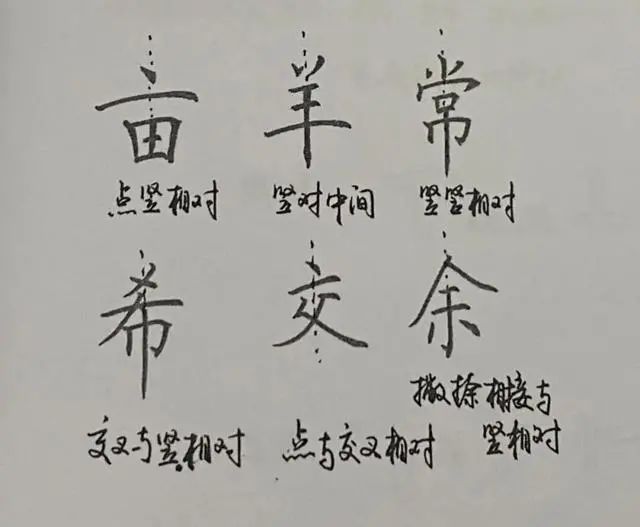 亩 羊 常
点竖相对 竖对中间 竖竖相对
希 交 余
交叉与竖相对 点与交叉相对 撇捺相接与
竖相对